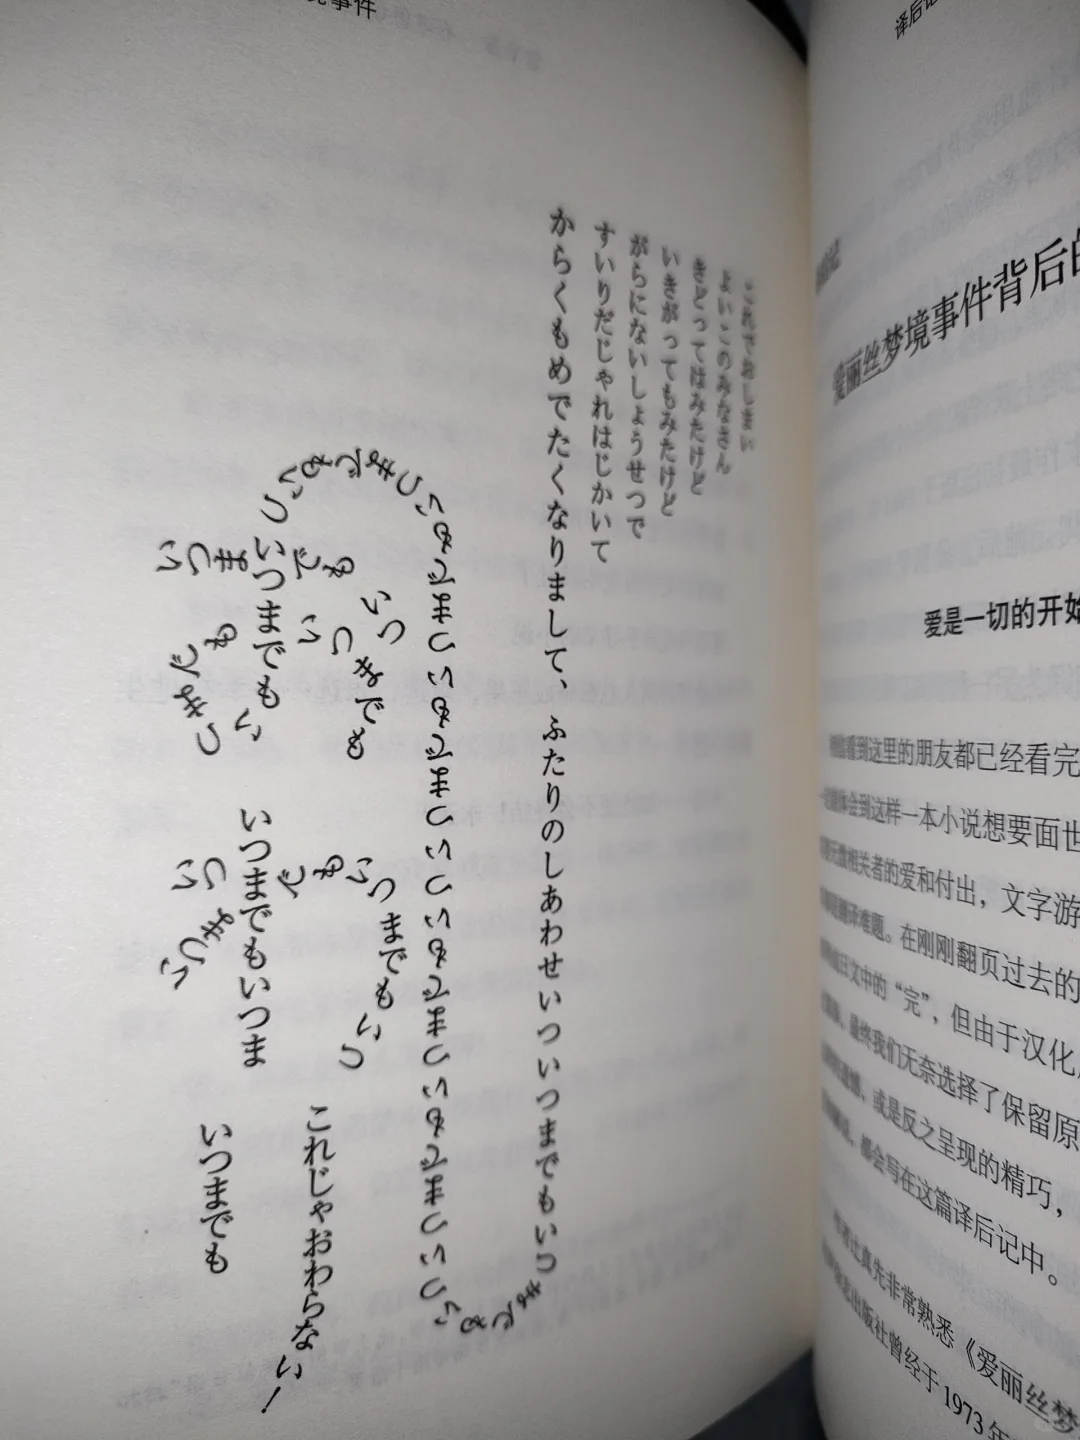 境事件
これでおしまい
よいこのみなさん
きどってはみたけど
いきがってもみたけど
がらにないしょうせつで
すいりだじゃれはじかいて
からくもめでたくなりまして、ふたりのしあわせいついつまでもいつまでもいつまでもいつまでもいついつまでもいつまでもいつまでもいつまでもいつ
いつまでも
いつまでも
いつまでも
いつまでも
いつまでもいつま
いつまでもいつまでもいつ
いつまでも
これじゃおわらない!
译后记
爱丽丝梦境事件背后的
爱是一切的开始
看到这里的朋友都已经看完
体会到这样一本小说想要面世
相关者的爱和付出，文字游
翻译难题。在刚刚翻页过去的
日文中的“完”，但由于汉化
最终我们无奈选择了保留原
或是反之呈现的精巧，
都会写在这篇译后记中。
真先非常熟悉《爱丽丝梦
出版社曾经于1973年